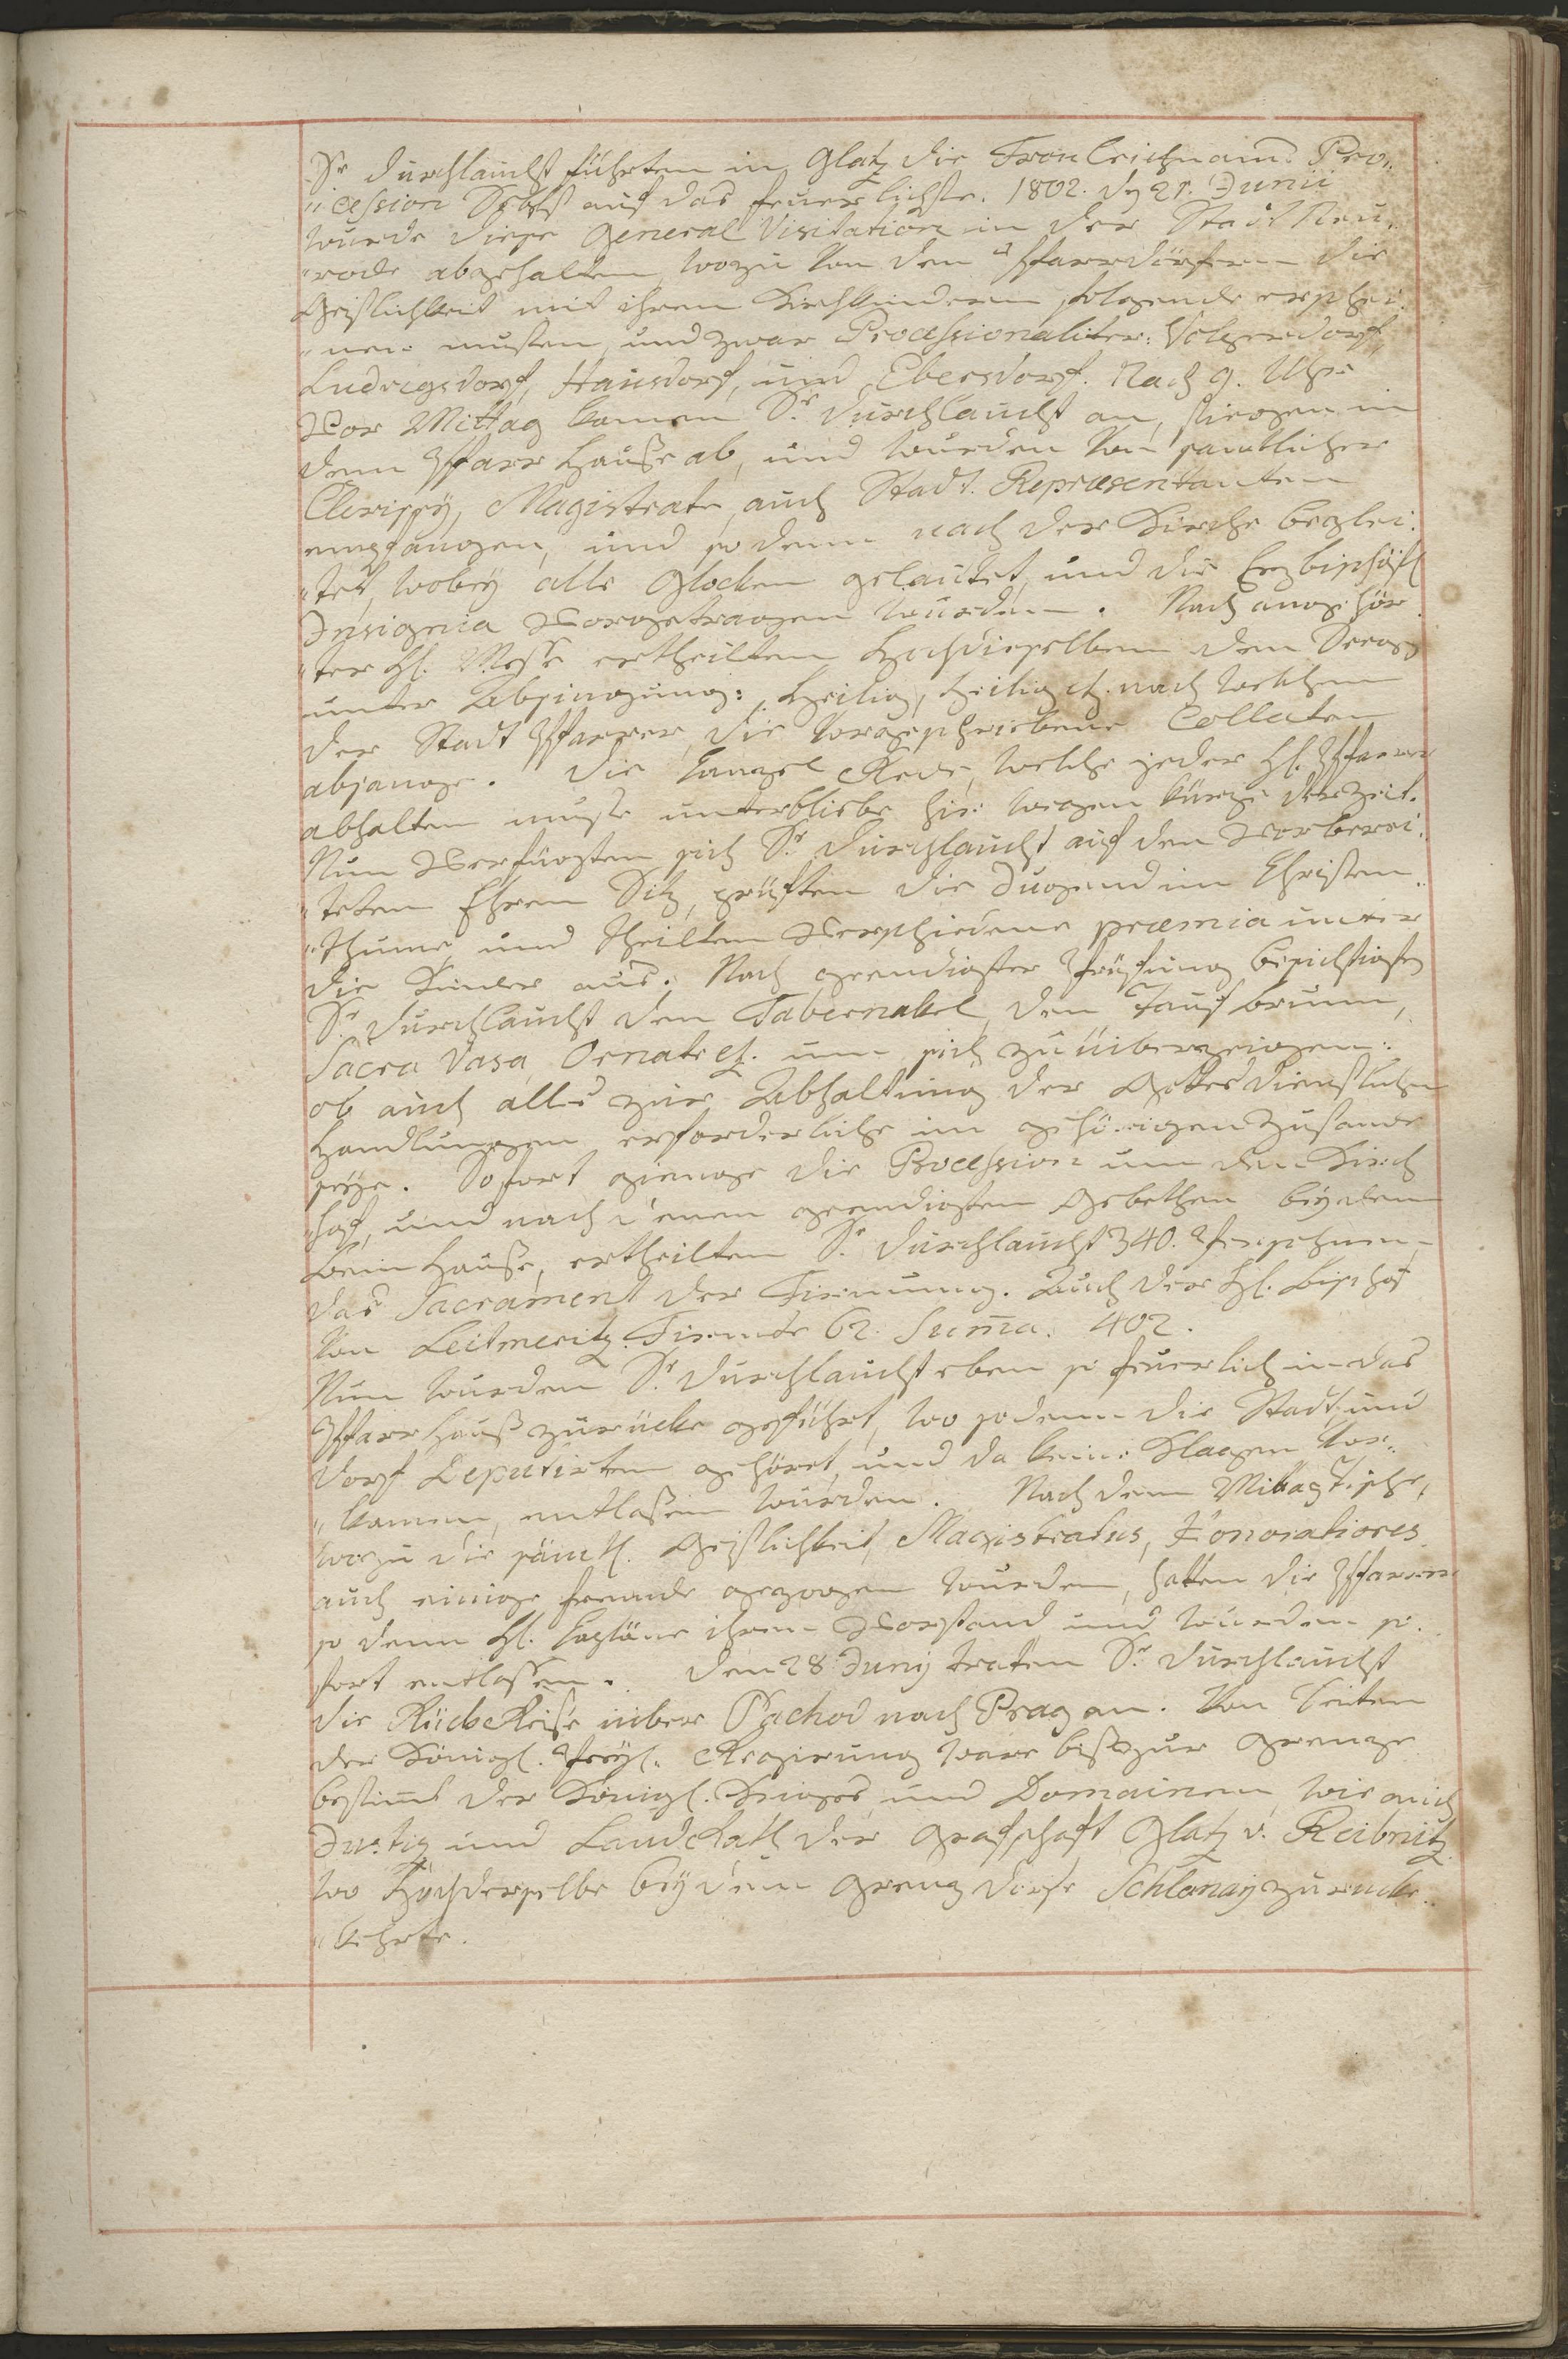 Sr Durchlaucht führten in Glatz die Fronleichnams Pro„
„cession Selbst auf das feuerlichste. 1802. dn 21. Junii
wurde diese General Visitation in der Stadt Neu„
„rode abgehalten, wozu von den Pfarrdörfern die
Geistlichkeit mit ihren Kirchkindern folgende erschei„
„nen musten, und zwar Processionaliter: Volgersdorf,
Ludwigsdorf, Hausdorf, und Ebersdorf. Nach 9. Uhr
Vor Mittag kamen Sr Durchlaucht an, stiegen in
dem Pfarr Hauße ab, und wurden von samtlicher
Clerissy, Magistrate, auch Stadt. Repræsentanten
empfangen, und so denn nach der Kirche beglei„
„tet, wobey alle Glocken gelautet, und die Erzbischöfl
Insignia Vorgetragen wurden. Nach angehör„
„ter hl. Messe ertheilten Hochdieselben den Seegen
unter Absingung: Heilig, heilig etc. nach welchem
der Stadt Pfarrer, die vorgeschriebene Collecten
absange. Die Kanzel Rede, welche jeder Hl. Pfarrer
abhalten muste unterbliebe hier wegen kürze der Zeit.
Nun Verfügten sich Sr Durchlaucht auf den Vorberei„
„teten Ehren Sitz, prüften die Jugend im Christen„
„thume, und theilten Verschiedene præmia unter
die Kinder aus. Nach geendigter Prüfung besichtigten
Sr Durchlaucht den Tabernakel, den Taufbrunn,
Sacra Vasa, Ornate etc. um sich zu überzeigen:
ob auch alles zur Abhaltung der Gottesdienstlichen
Handlungen erforderliche im gehörigen Zustande
seye. Sofort gienge die Procession um den Kirch
hof, und nach denen geendigten Gebethen bey dem
Bein Hauße, ertheilten Sr Durchlaucht 340. Personen
das Sacrament der Firmung. Auch der Hl. Bischof
von Leitmeritz Firmte 62. Summa. 402.
Nun wurden Sr Durchlaucht eben so feuerlich in das
Pfarr Hauß zurücke geführt, wo sodenn die Stadt und
Dorf Deputirten gehöret, und da keine Klagen vor„
„kamen, entlaßen wurden. Nach dem Mittag Tische,
wozu die sämtl. Geistlichkeit, Magistratus, Honoratiores
auch einige fremde gezogen wurden, hatten die Pfarrer
so denn Hl. Kapläne ihren Vorstand und wurden so„
fort entlassen. Den 28 Juny traten Sr Durchlaucht
die Rückreise über Nachod nach Prag an. Von Seiten
der Königl. Preyß. Regirung ware biß zur Grenze
bestimt der Königl. Krieges und Domainen, wie auch
Justiz und Land Rath der Grafschaft Glatz v. Reibnitz
wo Hochderselbe bey dem Grenz Dorfe Schlanay zurücke
„kehrte.